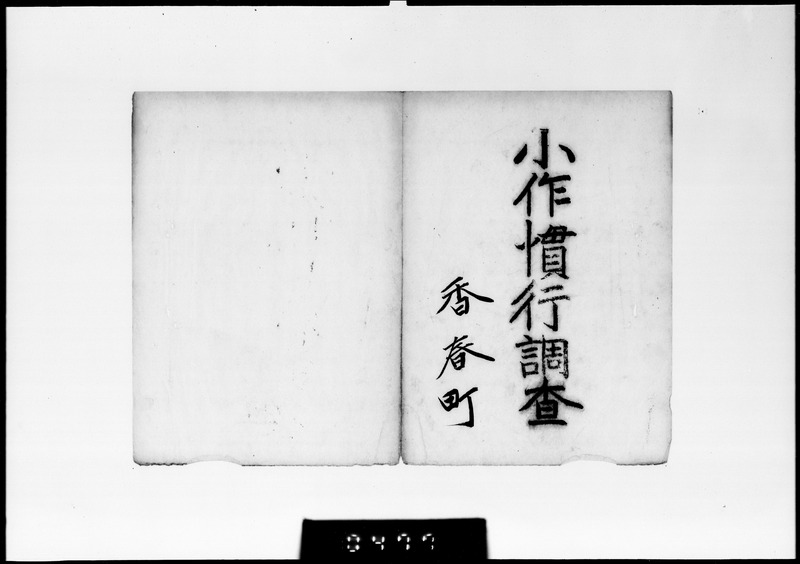 小作慣行調査
香春町
0477